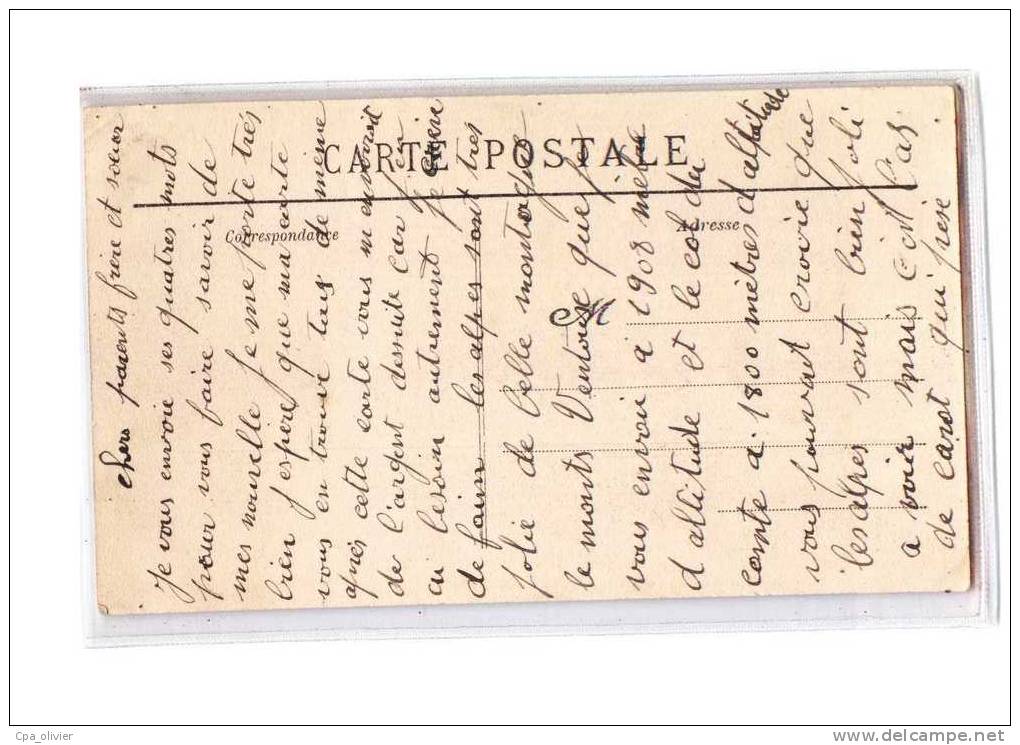 CARTE POSTALE
Correspondance
Adresse
M
chers parents frère et sœur
Je vous envoie ses quatres mots
pour vous faire savoir de
mes nouvelle Je me porte très
bien J espère que ma carte
vous en trouve tous de meme
après cette carte vous m enverrai
de l'argent dessuite car J en
ai besoin autrement Je
de faim les alpes sont très
jolie de belle montagne
le monts Ventoise que Je
vous envoi à 1908 mètre
d altitude et le col de
compte a 1800 mètres d'altitude
vous pouvait croire que
les alpes sont bien Joli
a voir mais c'est l'as
de carot qui pese
Cpa_olivier
www.delcampe.net